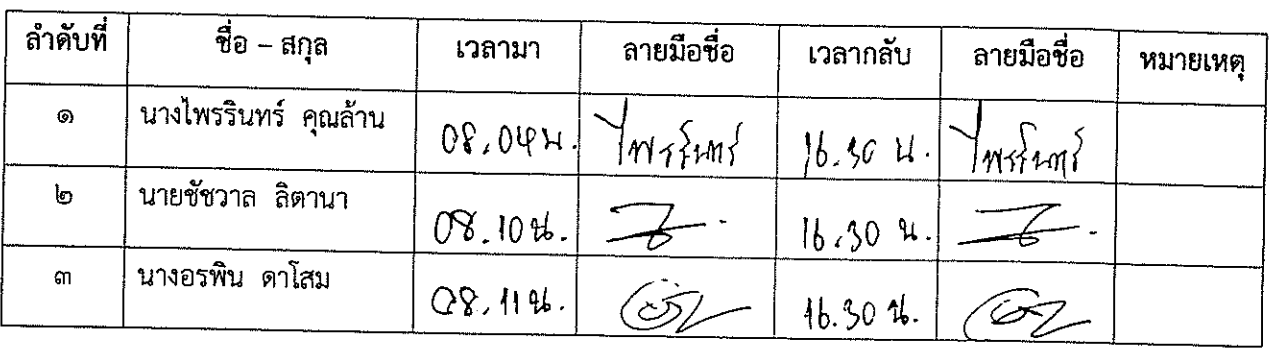 ลำดับที่ ชื่อ – สกุล เวลามา ลายมือชื่อ เวลากลับ ลายมือชื่อ หมายเหตุ
๑ นางไพรรินทร์ คุณล้าน 08.04น. ไพรรินทร์ 16.30 น. ไพรรินทร์
๒ นายชัชวาล ลิตานา 08.10น. 16.30 น.
๓ นางอรพิน ดาโสม 08.11น. 16.30 น.